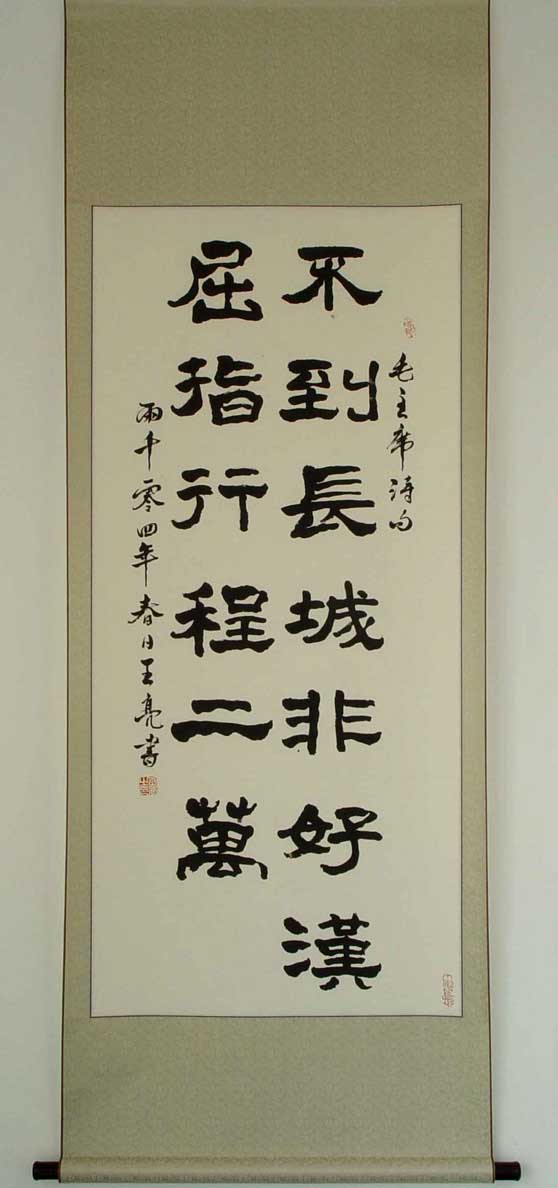 毛主席詩句
不到長城非好漢
屈指行程二萬
兩千零四年春日王亮書